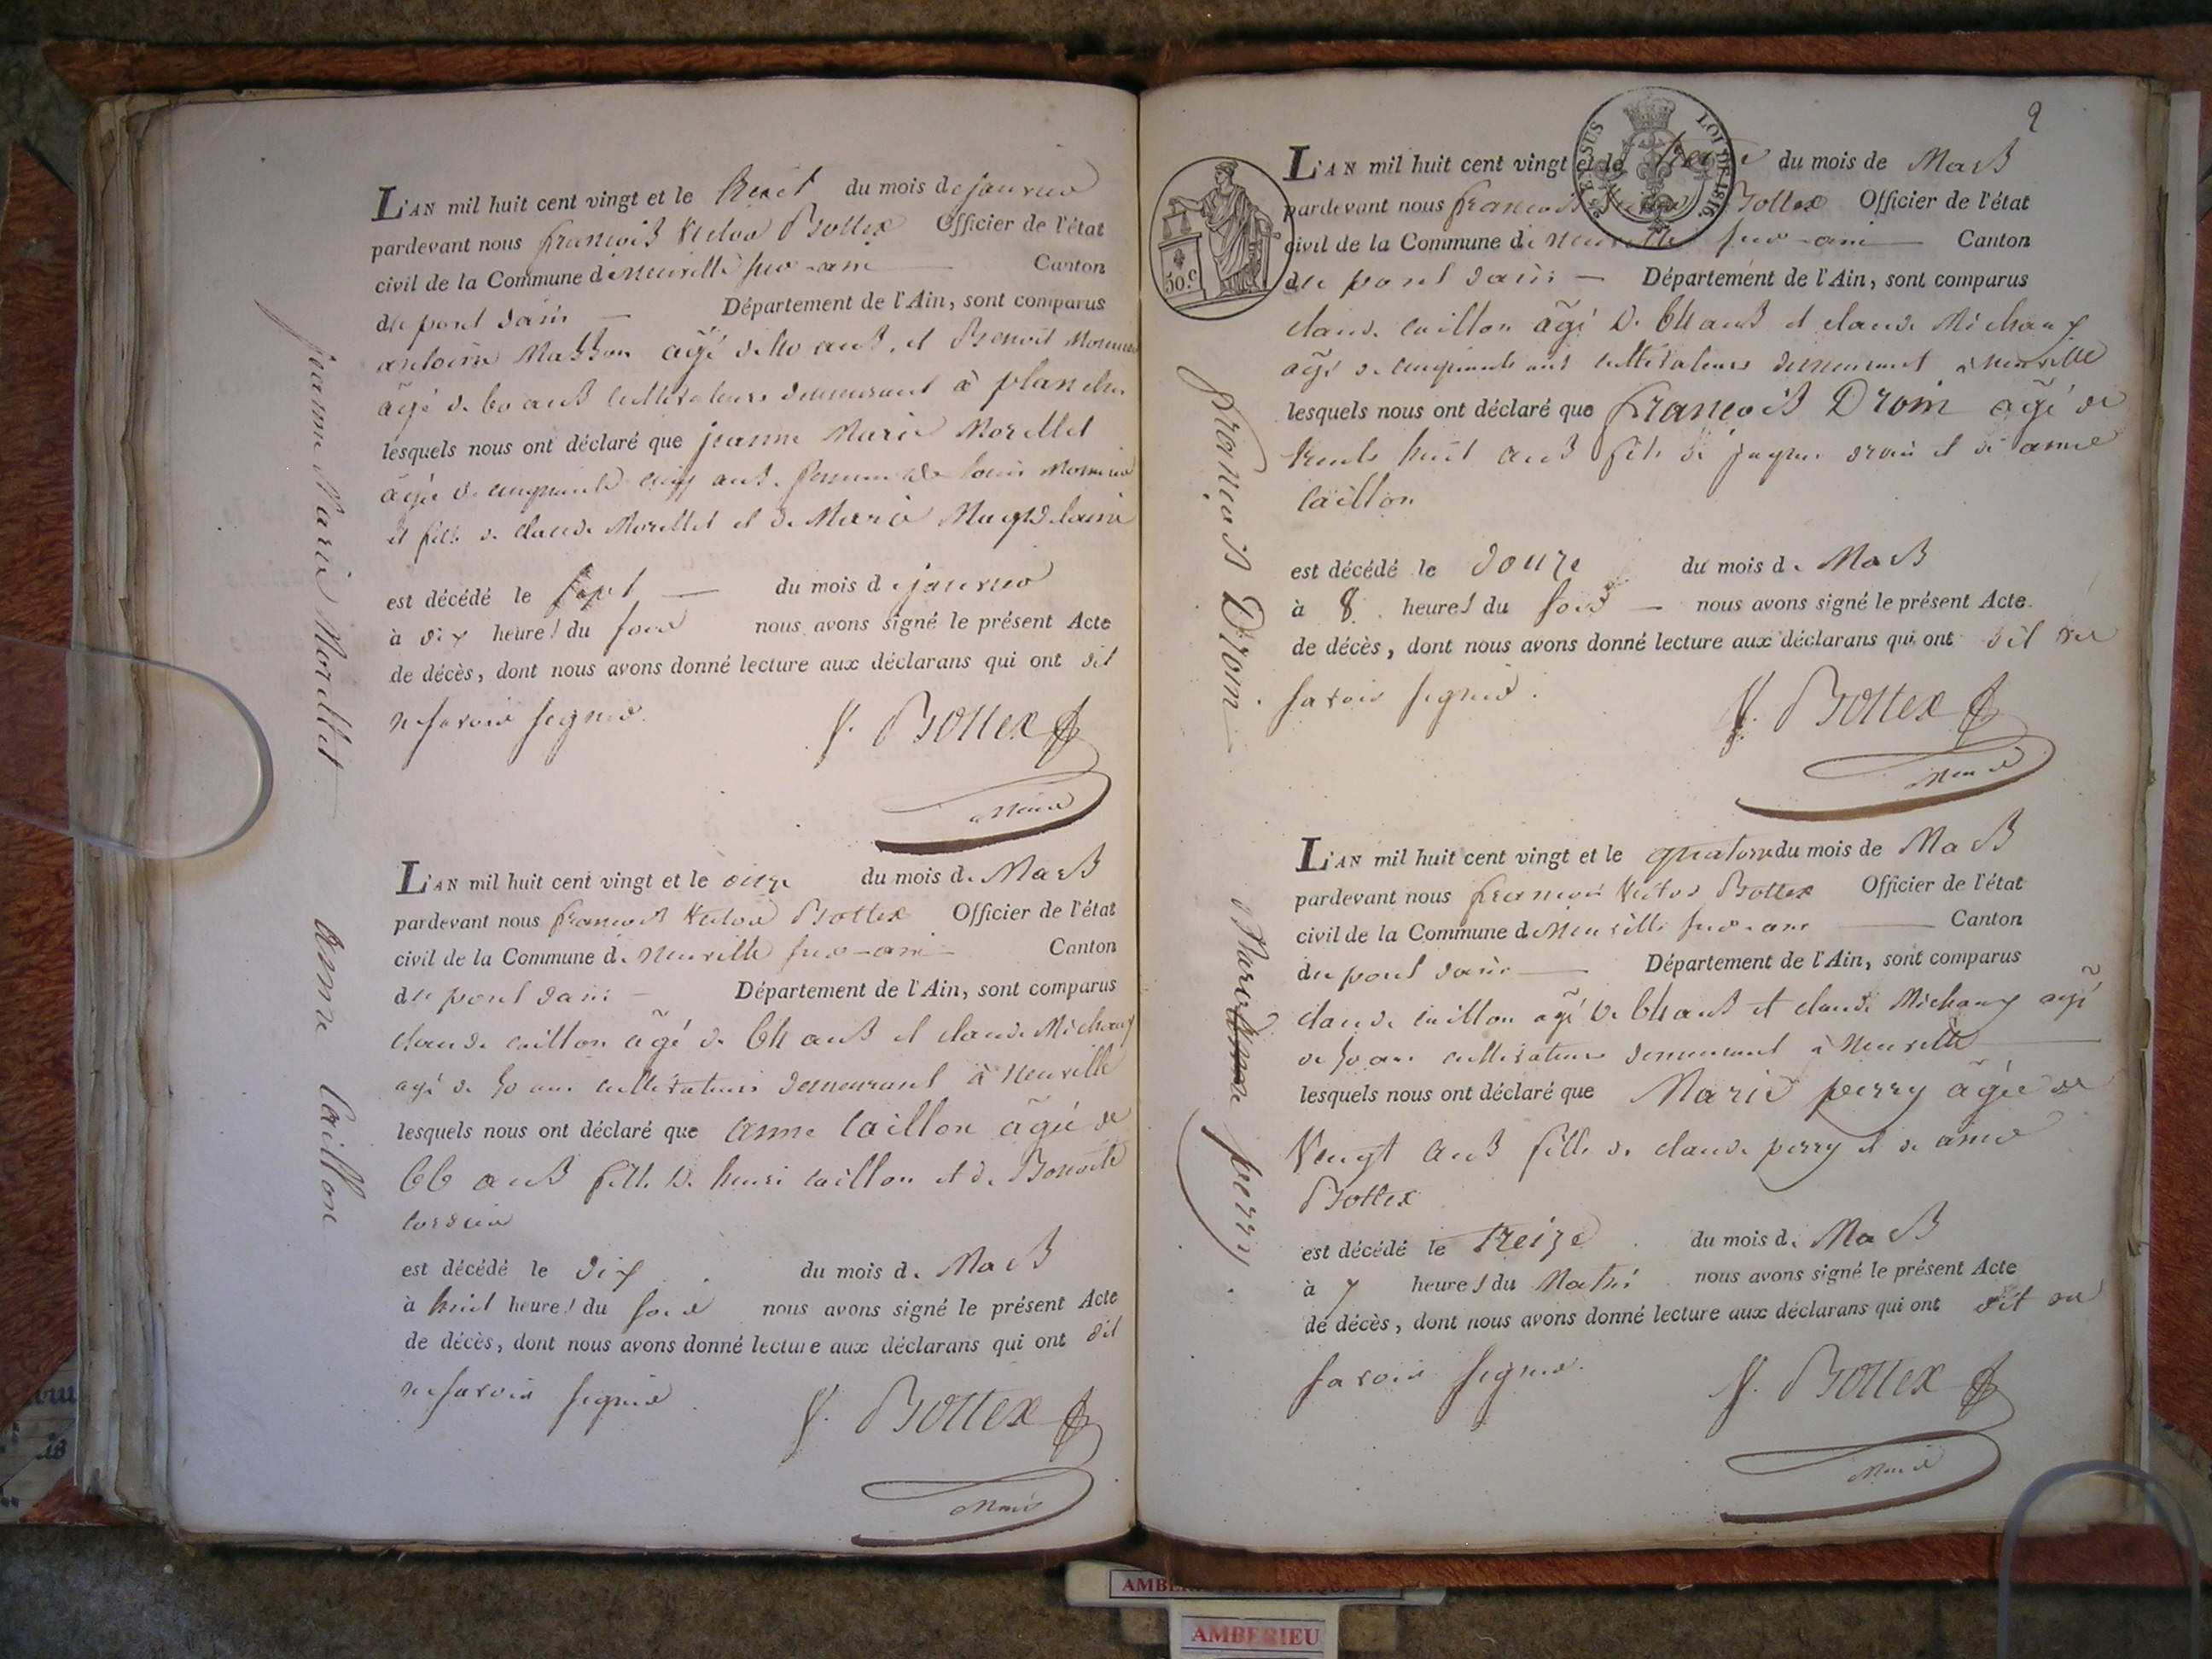 L'AN mil huit cent vingt et le huit du mois de janvier
pardevant nous françois Victor Bottex Officier de l'état
civil de la Commune de neuville sur-ain Canton
du pont dain Département de l'Ain, sont comparus
antoine Masson agé de 40 ans, et Benoit Monnier
âgé de 60 ans cultivateurs demeurant à planche
lesquels nous ont déclaré que jeanne Marie Morellet
âgée de cinquante cinq ans femme de louis Monnier
et fille de claude Morellet et de Marie Magdelaine
est décédé le sept du mois de janvier
à dix heures du soir nous avons signé le présent Acte
de décès, dont nous avons donné lecture aux déclarans qui ont dit
ne savoir signer.
V. Bottex
Maire
jeanne Marie Morellet
L'AN mil huit cent vingt et le onze du mois de Mars
pardevant nous françois Victor Bottex Officier de l'état
civil de la Commune de Neuville sur-ain Canton
du pont dain Département de l'Ain, sont comparus
claude caillon âgé de 64 ans et claude Michaux
agé de 50 ans cultivateurs demeurant à Neuville
lesquels nous ont déclaré que anne Caillon âgée de
66 ans fille de henri caillon et de Benoite
est décédé le dix du mois de Mars
à huit heures du soir nous avons signé le présent Acte
de décès, dont nous avons donné lecture aux déclarans qui ont dit
ne savoir signer
V. Bottex
Maire
anne Caillon
2
L'AN mil huit cent vingt et le treize du mois de Mars
pardevant nous françois Victor Bottex Officier de l'état
civil de la Commune de neuville sur-ain Canton
du pont dain Département de l'Ain, sont comparus
claude caillon âgé de 64 ans et claude Michaux
âgé de cinquante ans cultivateurs demeurant à neuville
lesquels nous ont déclaré que françois Droin âgé de
trente huit ans fils de jaques droin et de anne
caillon
est décédé le douze du mois de Mars
à 8 heures du soir nous avons signé le présent Acte
de décès, dont nous avons donné lecture aux déclarans qui ont dit ne
savoir signer.
V. Bottex
Maire
françois Droin
50 c.
LOI DE 1816
L'AN mil huit cent vingt et le quatorze du mois de Mars
pardevant nous françois Victor Bottex Officier de l'état
civil de la Commune de Neuville sur-ain Canton
du pont dain Département de l'Ain, sont comparus
claude caillon agé de 64 ans et claude Michaux agé
de 50 ans cultivateurs demeurant à Neuville
lesquels nous ont déclaré que Marie perry âgée de
Vingt ans fille de claude perry et de anne
Bottex
est décédé le treize du mois de Mars
à 7 heures du Matin nous avons signé le présent Acte
de décès, dont nous avons donné lecture aux déclarans qui ont dit ne
savoir signer.
V. Bottex
Maire
Marie perry
AMBERIEU